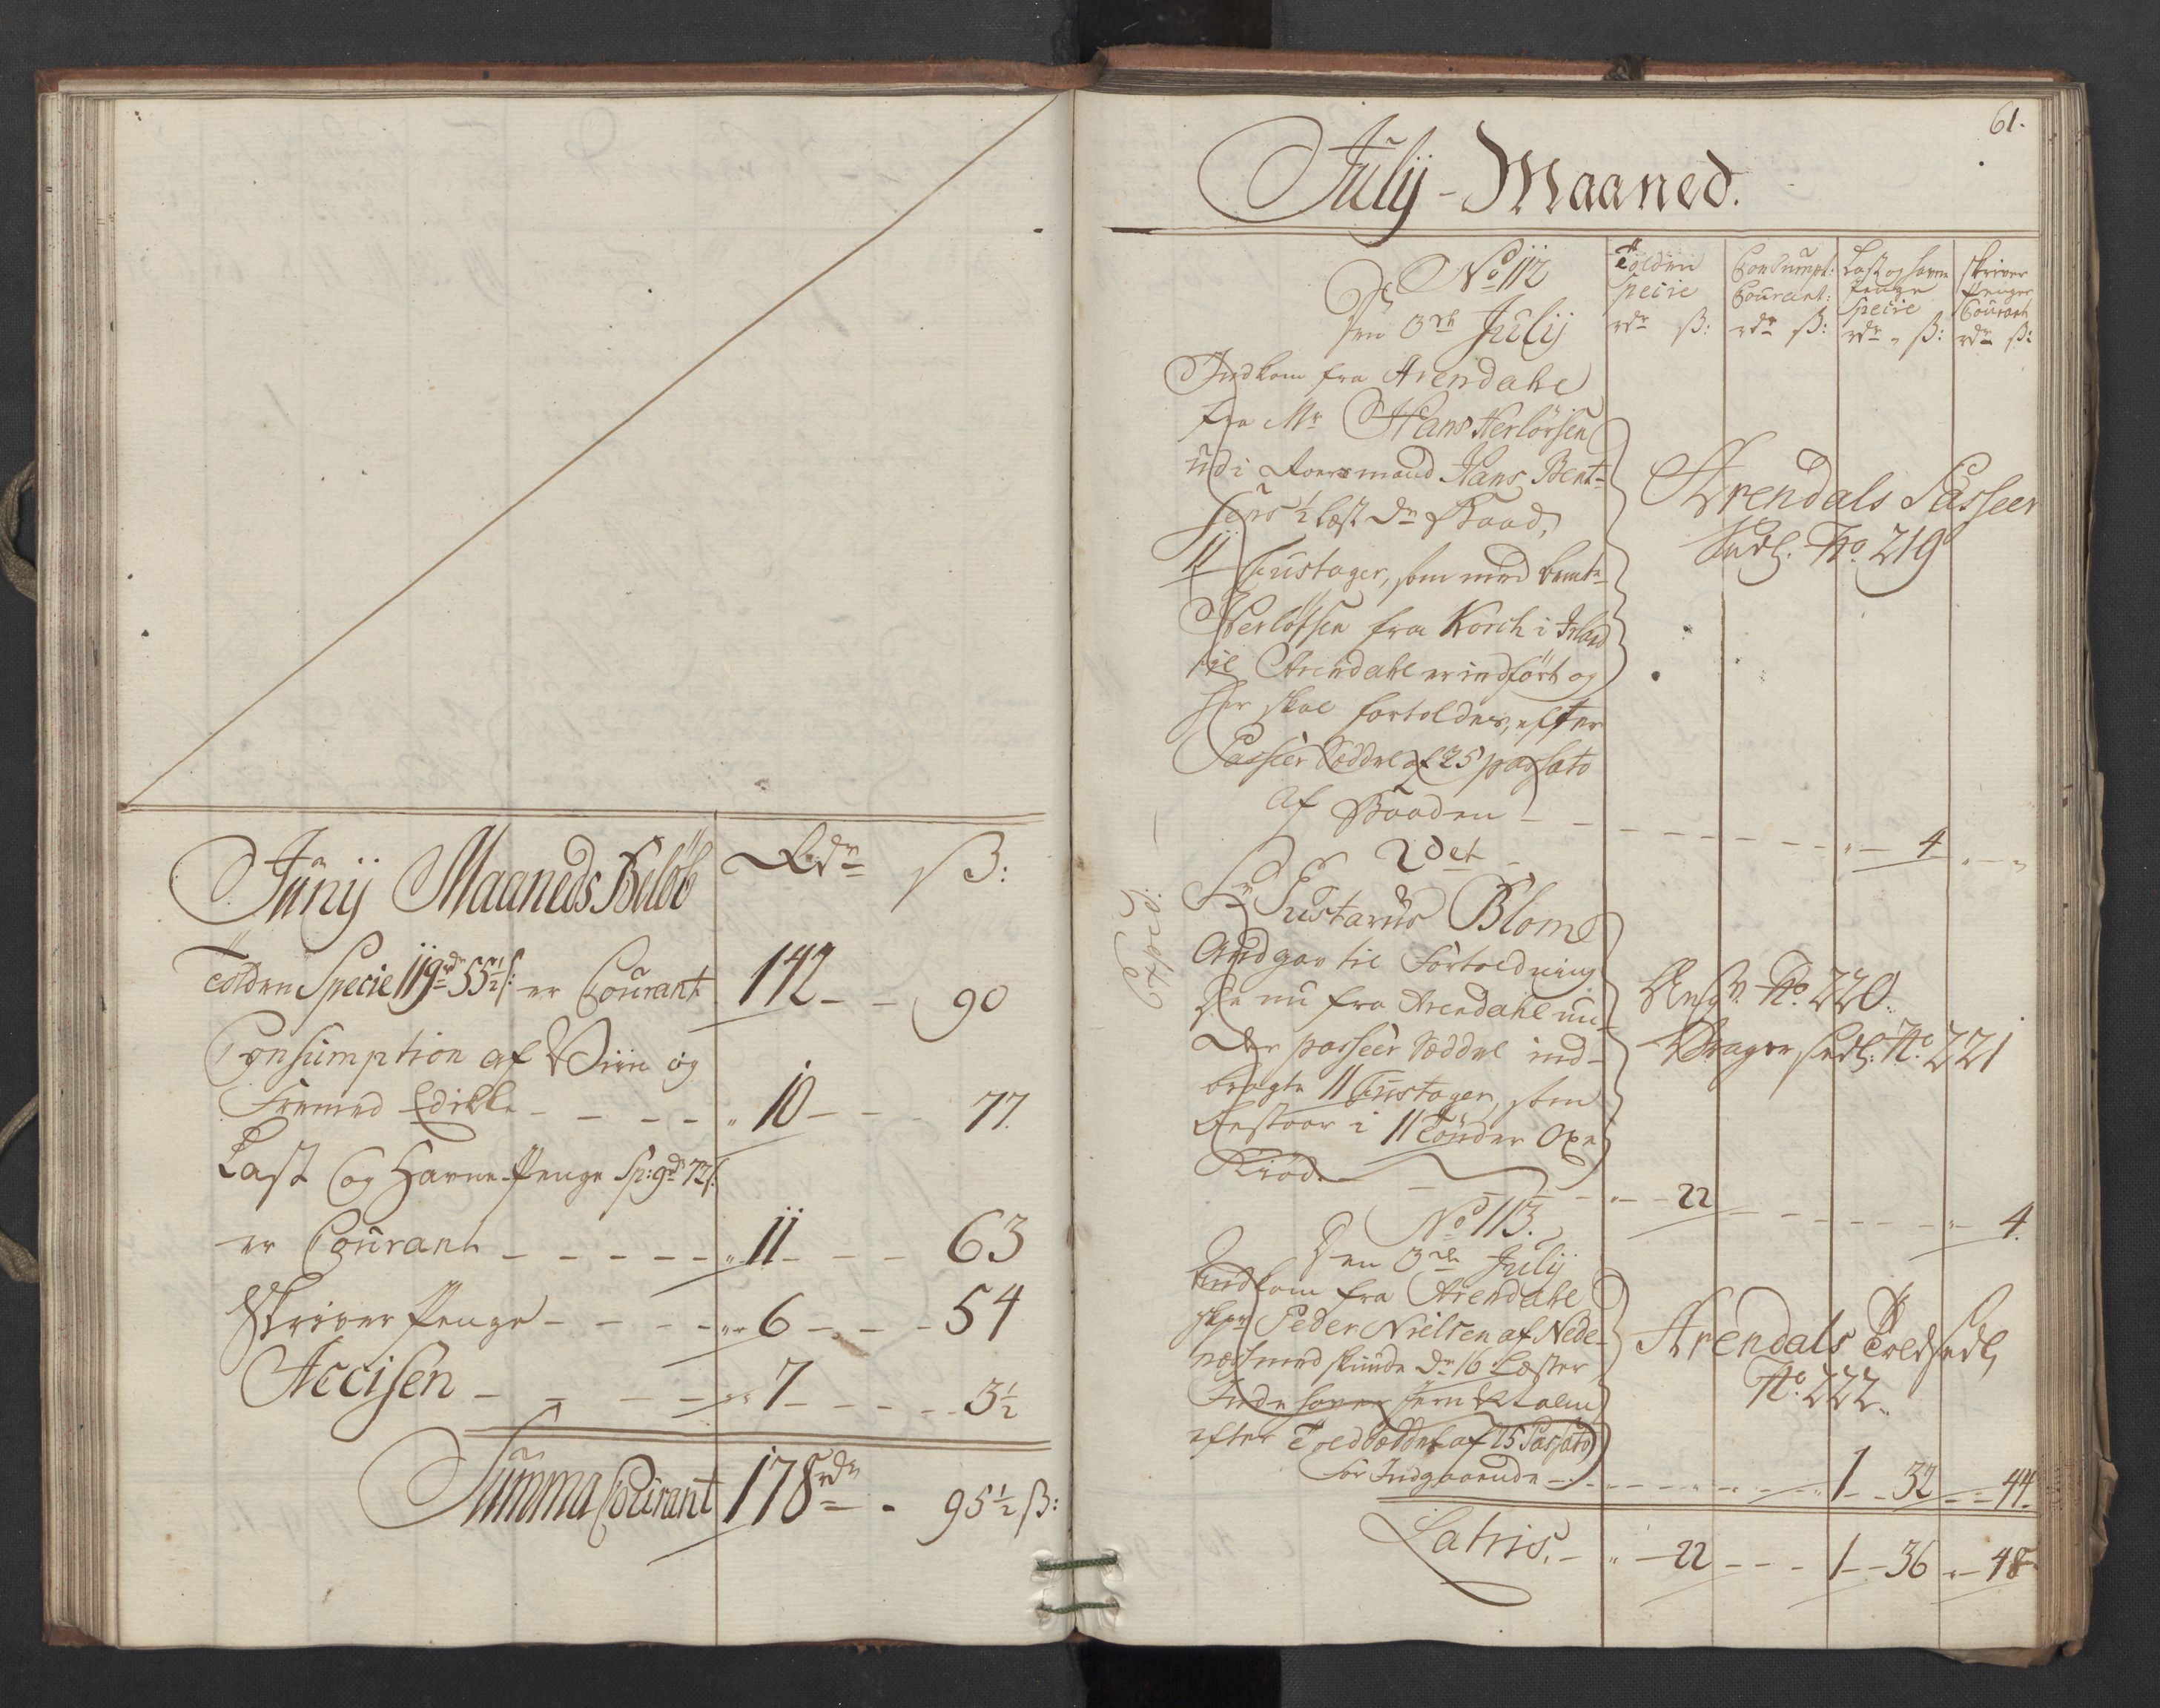 Junij Maaneds Beløb Rdr ß:
Tolden Specie 119rdr 55½ß: er Courant 142 - - 90
Consumption af Viin og
Fremmed Edikke - - - - „ 10 - - - 77.
Last og Havne-Penge Sp: 9rd 72ß:
er Courant - - - - - „ 11 - - - 63
Skriver Penge - - - - „ 6 - - - 54
Accisen - - - - - „ 7 - - - - 3½
Summa Courant 178rdr - 95½ ß:
61.
Julij-Maaned.
Tolden Specie rdr ß: Consumpt: Courant: rdr ß: Last og Havne Penge Specie rdr „ ß: Skriver Penger Courant rdr ß:
No 112
Den 3de Julij
Indkom fra Arendahl
fra Mr Hans Herlofsen
udi Roersmand Hans Bent-
sens ½ læst dr Baad,
11 Fustager, som med bemte
Herlofsen fra Korch i Irland
til Arendahl er indført og
her skal fortoldes, efter
Passeer Seddel af 25 passato
Arendals Passeer
Sedl. No. 219
af Baaden - - - - - - - - „ - 4 „ - „
2det
Sr Gustavus Blom
Angav til Fortoldning
De nu fra Arendahl un-
der passeer Seddel ind-
bragte 11 Fustager, som
bestaar i 11 Tønder Oxe
Kiød - - - - „ - 22 - - - - - - „ - 4.
Exped:
Angv. No. 220.
Drager Sedl. No 221
No 113.
Den 3de Julij
Indkom fra Arendahl
Skpr Peder Nielsen af Nede-
næs med skude dr 16 Læster
Inde havende som
efter Toldseddel af 25 Passato
Arendals Toldsedl,
No. 222.
for Indgaaende - - - - - - - „ 1 - 32 - - 44.
Latris. - „ - 22 - - - 1 - 36 „ - 48